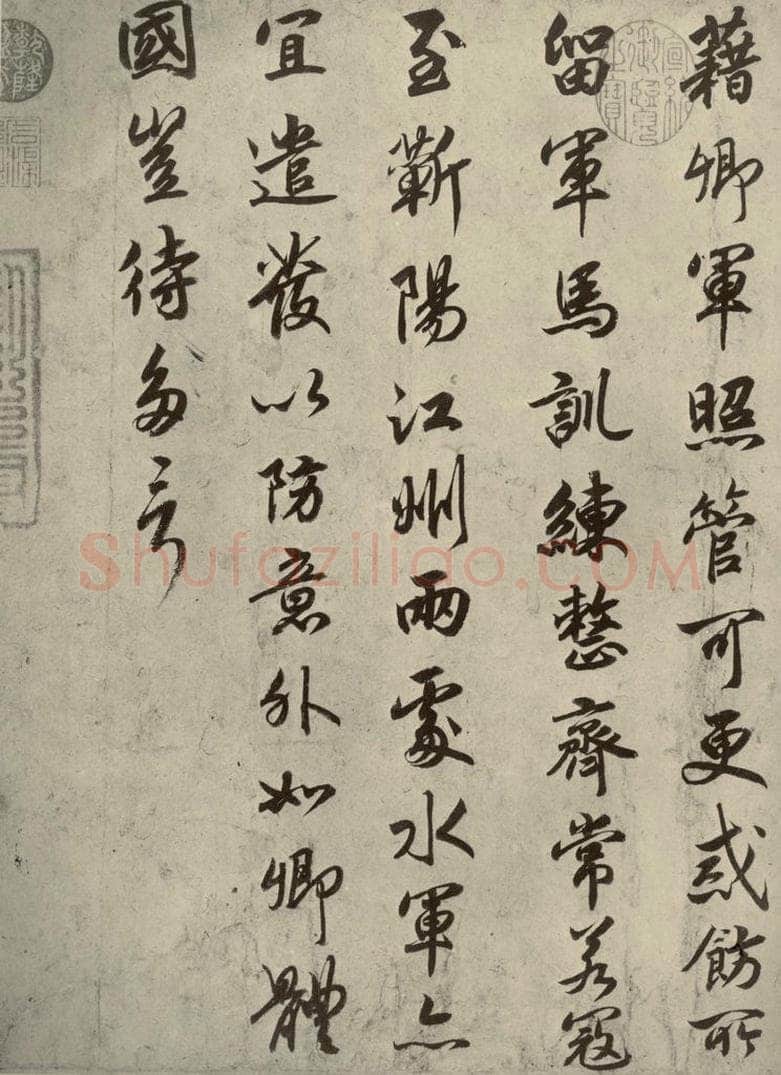 藉卿軍照管可更戒飭所
留軍馬訓練整齊常若寇
至蘄陽江州兩處水軍亦
宜遣發以防意外如卿體
國豈待多言
Shufaziliao.COM